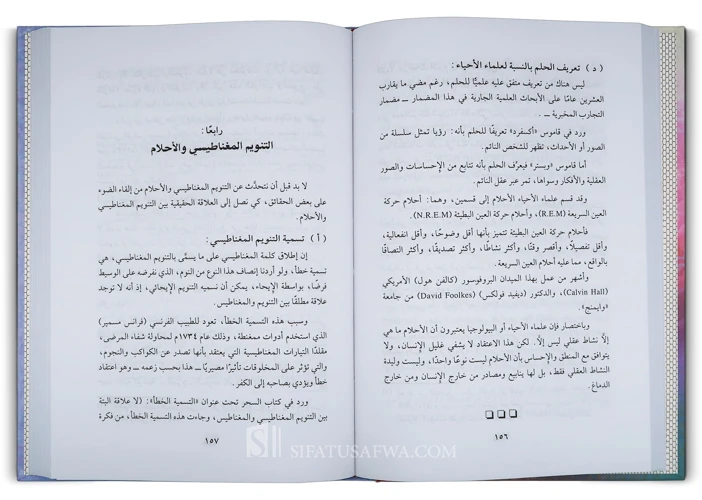 ( د ) تعريف الحلم بالنسبة لعلماء الأحياء :
ليس هناك من تعريف متفق عليه علميًّا للحلم، رغم مضي ما يقارب
العشرين عامًا على الأبحاث العلمية الجارية في هذا المضمار ــ مضمار
التجارب المخبرية ــ .
ورد في قاموس «أكسفرد» تعريفًا للحلم بأنه: رؤيا تمثل سلسلة من
الصور أو الأحداث، تظهر للشخص النائم.
أما قاموس «وبستر» فيعرَّف الحلم بأنه تتابع من الإحساسات والصور
العقلية والأفكار وسواها، تمر عبر عقل النائم.
وقد قسم علماء الأحياء الأحلام إلى قسمين، وهما: أحلام حركة
العين السريعة (R.E.M)، وأحلام حركة العين البطيئة (N.R.E.M).
فأحلام حركة العين البطيئة تتميز بأنها أقل وضوحًا، وأقل انفعالية،
وأقل تفصيلًا، وأقصر وقتًا، وأكثر نشاطًا، وأكثر تصديقًا، وأكثر التصاقًا
بالواقع، مما عليه أحلام العين السريعة.
وأشهر من عمل بهذا الميدان البروفوسور (كالفن هول) الأمريكي
(Calvin Hall)، والدكتور (ديفيد فولكس) (David Foolkes) من جامعة
«وايمنج».
وباختصار فإن علماء الأحياء أو البيولوجيا يعتبرون أن الأحلام ما هي
إلَّا نشاط عقلي ليس إلَّا. لكن هذا الاعتقاد لا يشفي غليل الإنسان، ولا
يتوافق مع المنطق والإحساس بأن الأحلام ليست نوعًا واحدًا، وليست وليدة
النشاط العقلي فقط، بل لها ينابيع ومصادر من خارج الإنسان ومن خارج
الدماغ.
١٥٦
رابعًا :
التنويم المغناطيسي والأحلام
لا بد قبل أن نتحدَّث عن التنويم المغناطيسي والأحلام من إلقاء الضوء
على بعض الحقائق، كي نصل إلى العلاقة الحقيقية بين التنويم المغناطيسي
والأحلام.
( أ ) تسمية التنويم المغناطيسي :
إن إطلاق كلمة المغناطيسي على ما يسمَّى بالتنويم المغناطيسي، هي
تسمية خطأ، ولو أردنا إنصاف هذا النوع من النوم، الذي نفرضه على الوسيط
فرضًا، بواسطة الإيحاء، يمكن أن نسميه التنويم الإيحائي، إذ أنه لا توجد
علاقة مطلقًا بين التنويم والمغناطيس.
وسبب هذه التسمية الخطأ، تعود للطبيب الفرنسي (فرانس مسمير)
الذي استخدم أدوات ممغنطة، وذلك عام ١٧٣٤م لمحاولة شفاء المرضى،
مقلدًا التيارات المغناطيسية التي يعتقد بأنها تصدر عن الكواكب والنجوم،
والتي تؤثر على المخلوقات تأثيرًا مصيريًا ــ هذا بحسب زعمه ــ وهو اعتقاد
خطأ ويؤدي بصاحبه إلى الكفر.
ورد في كتاب السحر تحت عنوان «التسمية الخطأ»: (لا علاقة البتة
بين التنويم المغناطيسي والمغناطيس، وجاءت هذه التسمية الخطأ، من فكرة
١٥٧
SIFATUSAFWA.COM